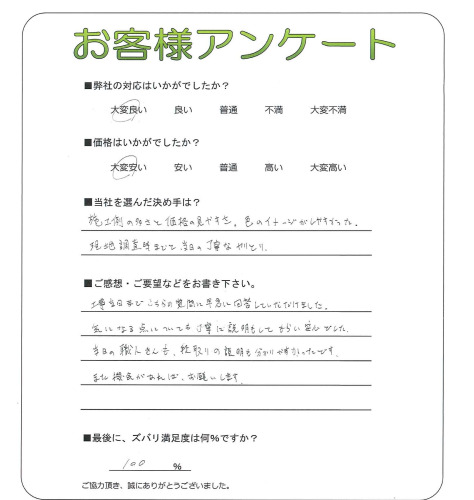 お客様アンケート
■弊社の対応はいかがでしたか？
大変良い 良い 普通 不満 大変不満
■価格はいかがでしたか？
大変安い 安い 普通 高い 大変高い
■当社を選んだ決め手は？
施工例の多さと価格の見やすさ。色のイメージがしやすかった。
現地調査時まじで当日の丁寧なやりとり。
■ご感想・ご要望などをお書き下さい。
工事当日までこちらの質問に早急に回答していただけました。
気になる点についても丁寧に説明をしてもらい安心でした。
当日の職人さんも、段取りの説明も分かりやすかったです。
また機会があれば、お願いします。
■最後に、ズバリ満足度は何%ですか？
100 %
ご協力頂き、誠にありがとうございました。